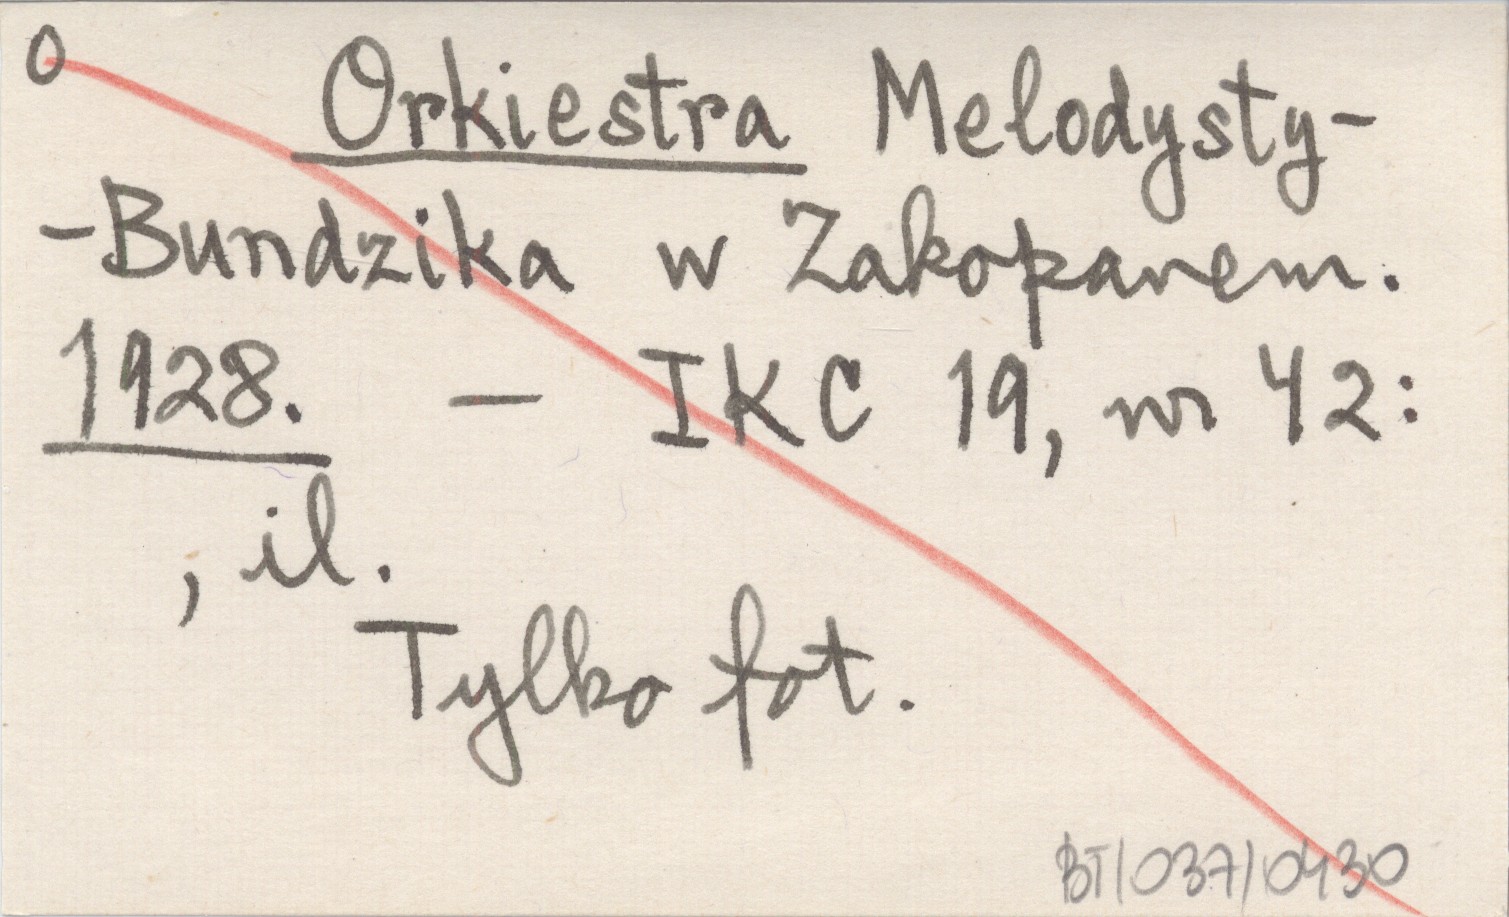 O
Orkiestra Melodysty-
-Bundzika w Zakopanem.
1928. — IKC 19, nr 42:
, il.
Tylko fot.
BT/037/0430